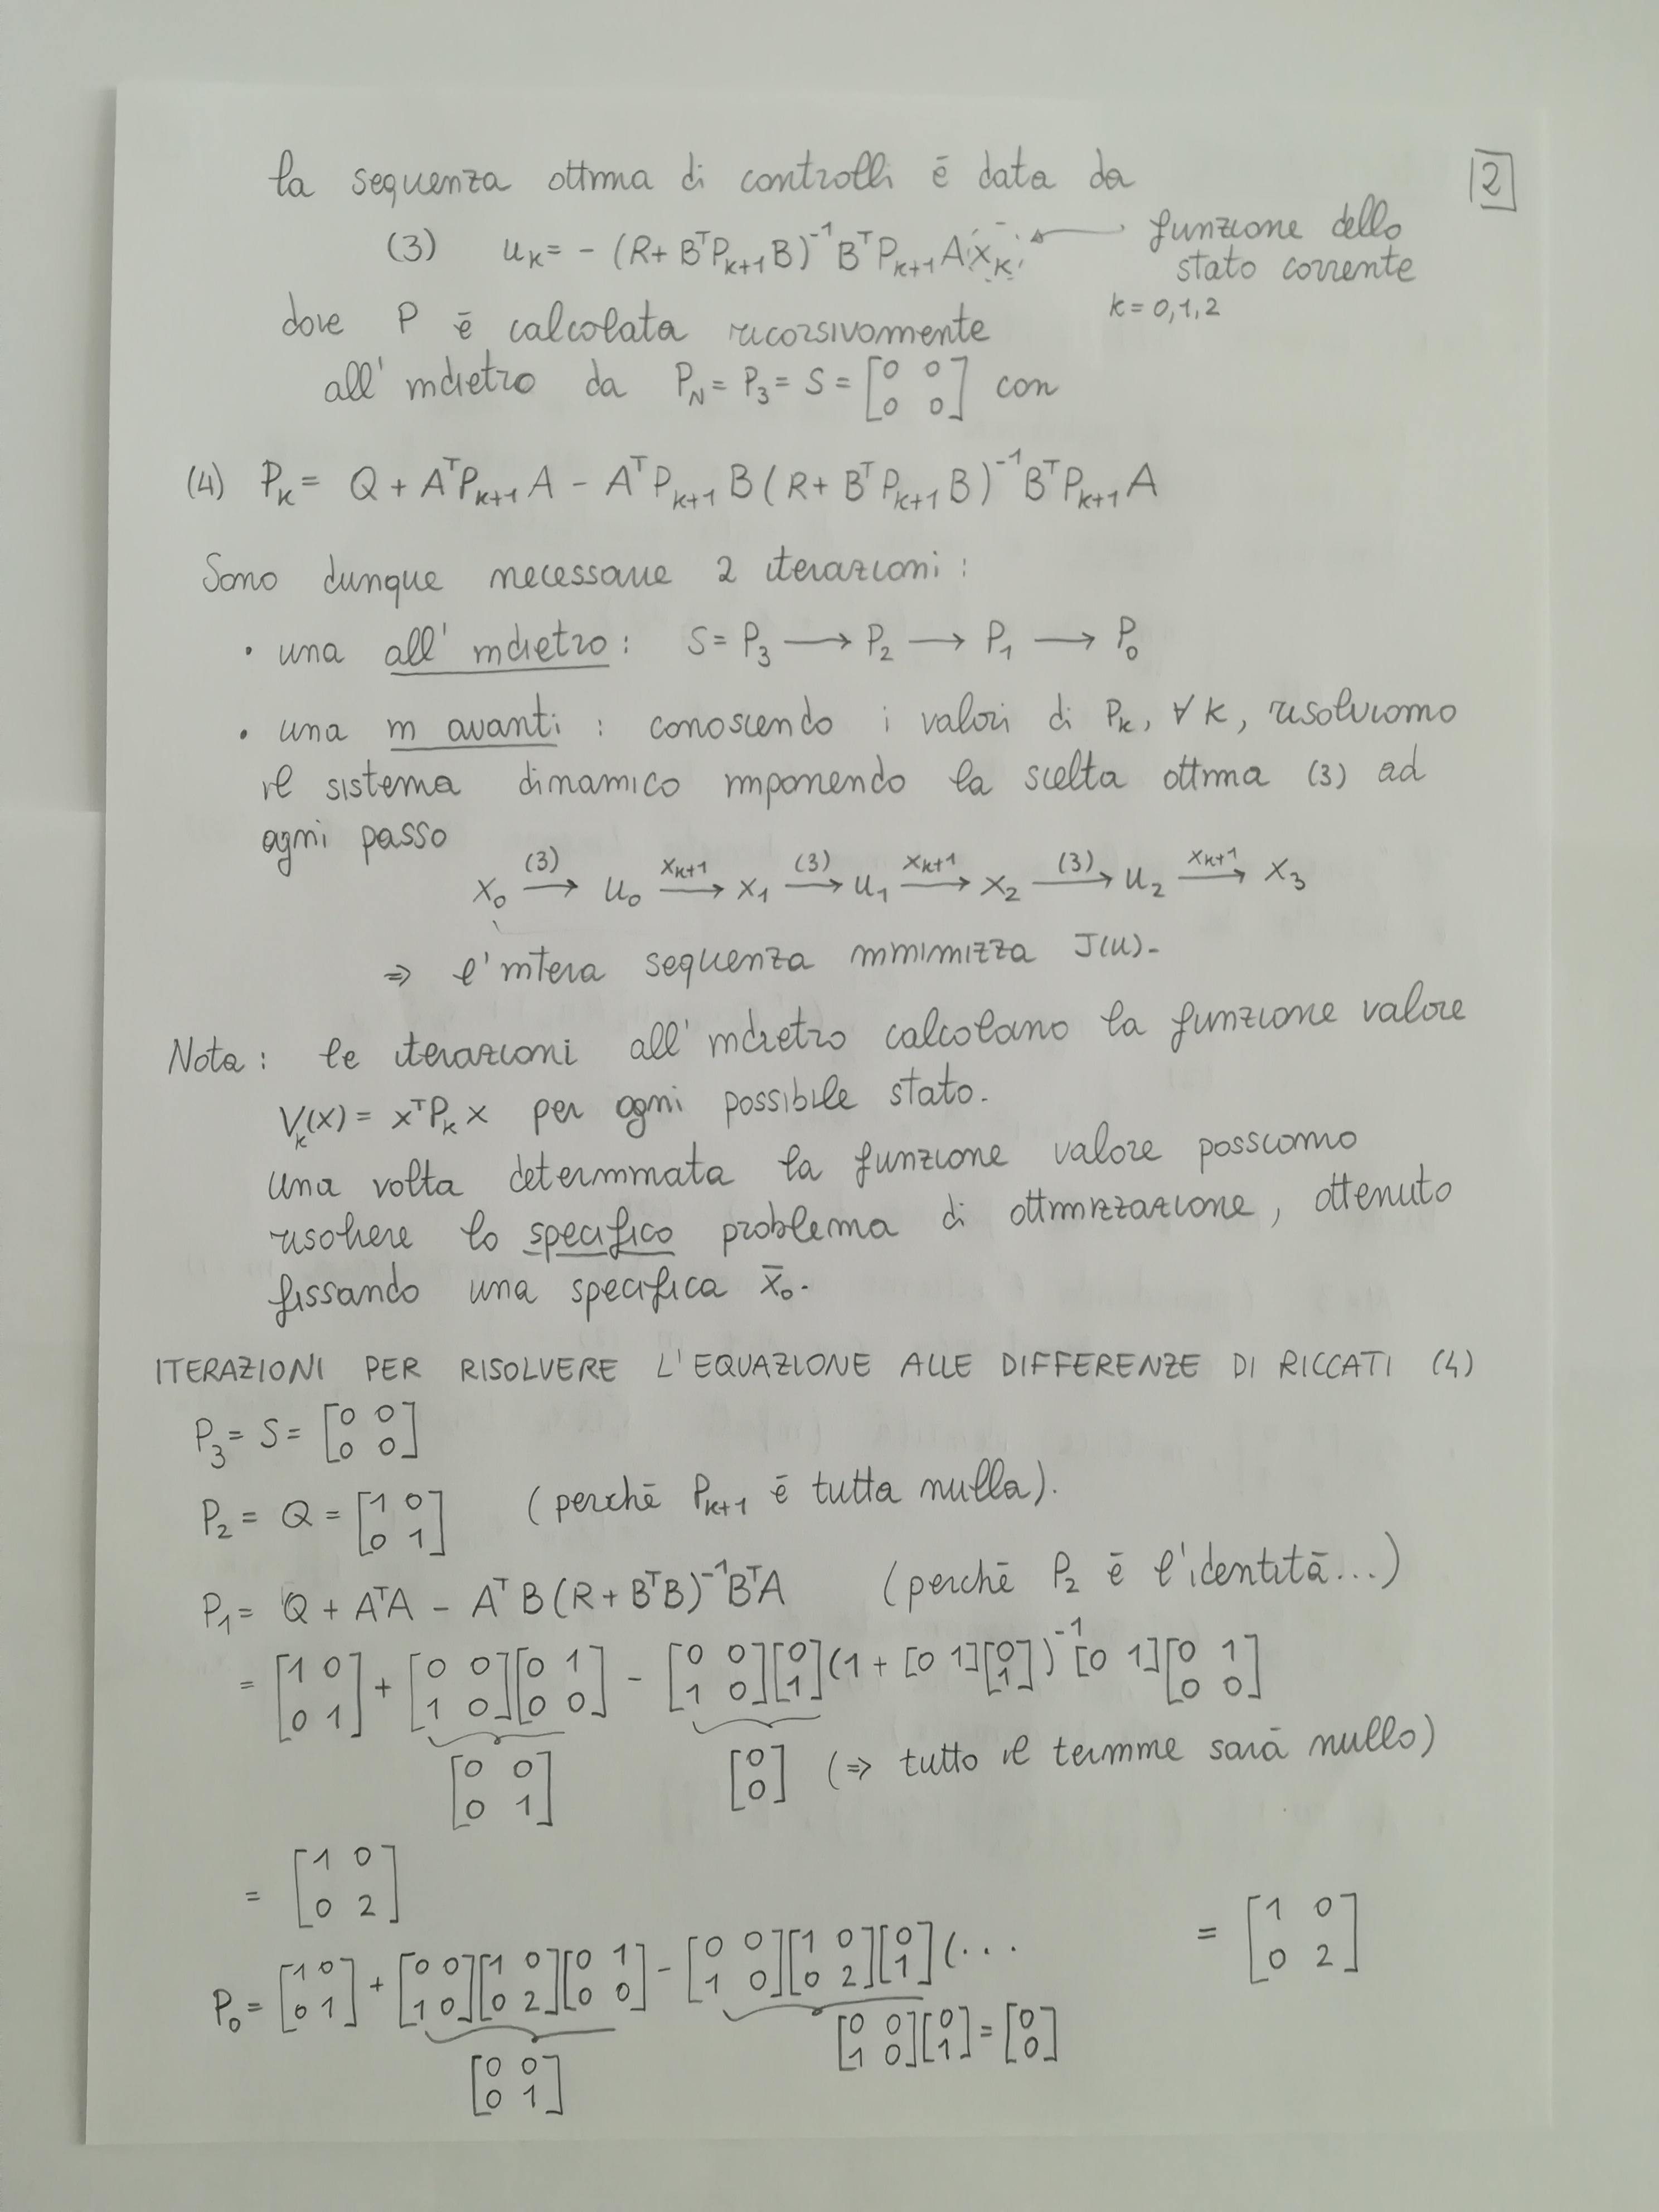 la sequenza ottima di controlli è data da
2
(3) u_k = - (R + B^T P_{k+1} B)^{-1} B^T P_{k+1} A x_k
funzione dello
stato corrente
k = 0,1,2
dove P è calcolata ricorsivamente
all'indietro da P_N = P_3 = S = [0 0; 0 0] con
(4) P_k = Q + A^T P_{k+1} A - A^T P_{k+1} B (R + B^T P_{k+1} B)^{-1} B^T P_{k+1} A
Sono dunque necessarie 2 iterazioni:
• una all'indietro: S = P_3 → P_2 → P_1 → P_0
• una in avanti: conoscendo i valori di P_k, ∀ k, risolviamo
il sistema dinamico imponendo la scelta ottima (3) ad
ogni passo
x_0 →(3) u_0 →x_{k+1} x_1 →(3) u_1 →x_{k+1} x_2 →(3) u_2 →x_{k+1} x_3
⇒ l'intera sequenza minimizza J(u).
Nota: le iterazioni all'indietro calcolano la funzione valore
V_k(x) = x^T P_k x per ogni possibile stato.
Una volta determinata la funzione valore possiamo
risolvere lo specifico problema di ottimizzazione, ottenuto
fissando una specifica x̄_0.
ITERAZIONI PER RISOLVERE L'EQUAZIONE ALLE DIFFERENZE DI RICCATI (4)
P_3 = S = [0 0; 0 0]
P_2 = Q = [1 0; 0 1] (perchè P_{k+1} è tutta nulla).
P_1 = Q + A^T A - A^T B (R + B^T B)^{-1} B^T A (perchè P_2 è l'identità...)
= [1 0; 0 1] + [0 0; 1 0][0 1; 0 0] - [0 0; 1 0][0; 1](1 + [0 1][0; 1])^{-1} [0 1][0 1; 0 0]
[0 0; 0 1] [0; 0] (⇒ tutto il termine sarà nullo)
= [1 0; 0 2]
P_0 = [1 0; 0 1] + [0 0; 1 0][1 0; 0 2][0 1; 0 0] - [0 0; 1 0][1 0; 0 2][0; 1](... = [1 0; 0 2]
[0 0; 0 1] [0 0; 1 0][0; 1] = [0; 0]